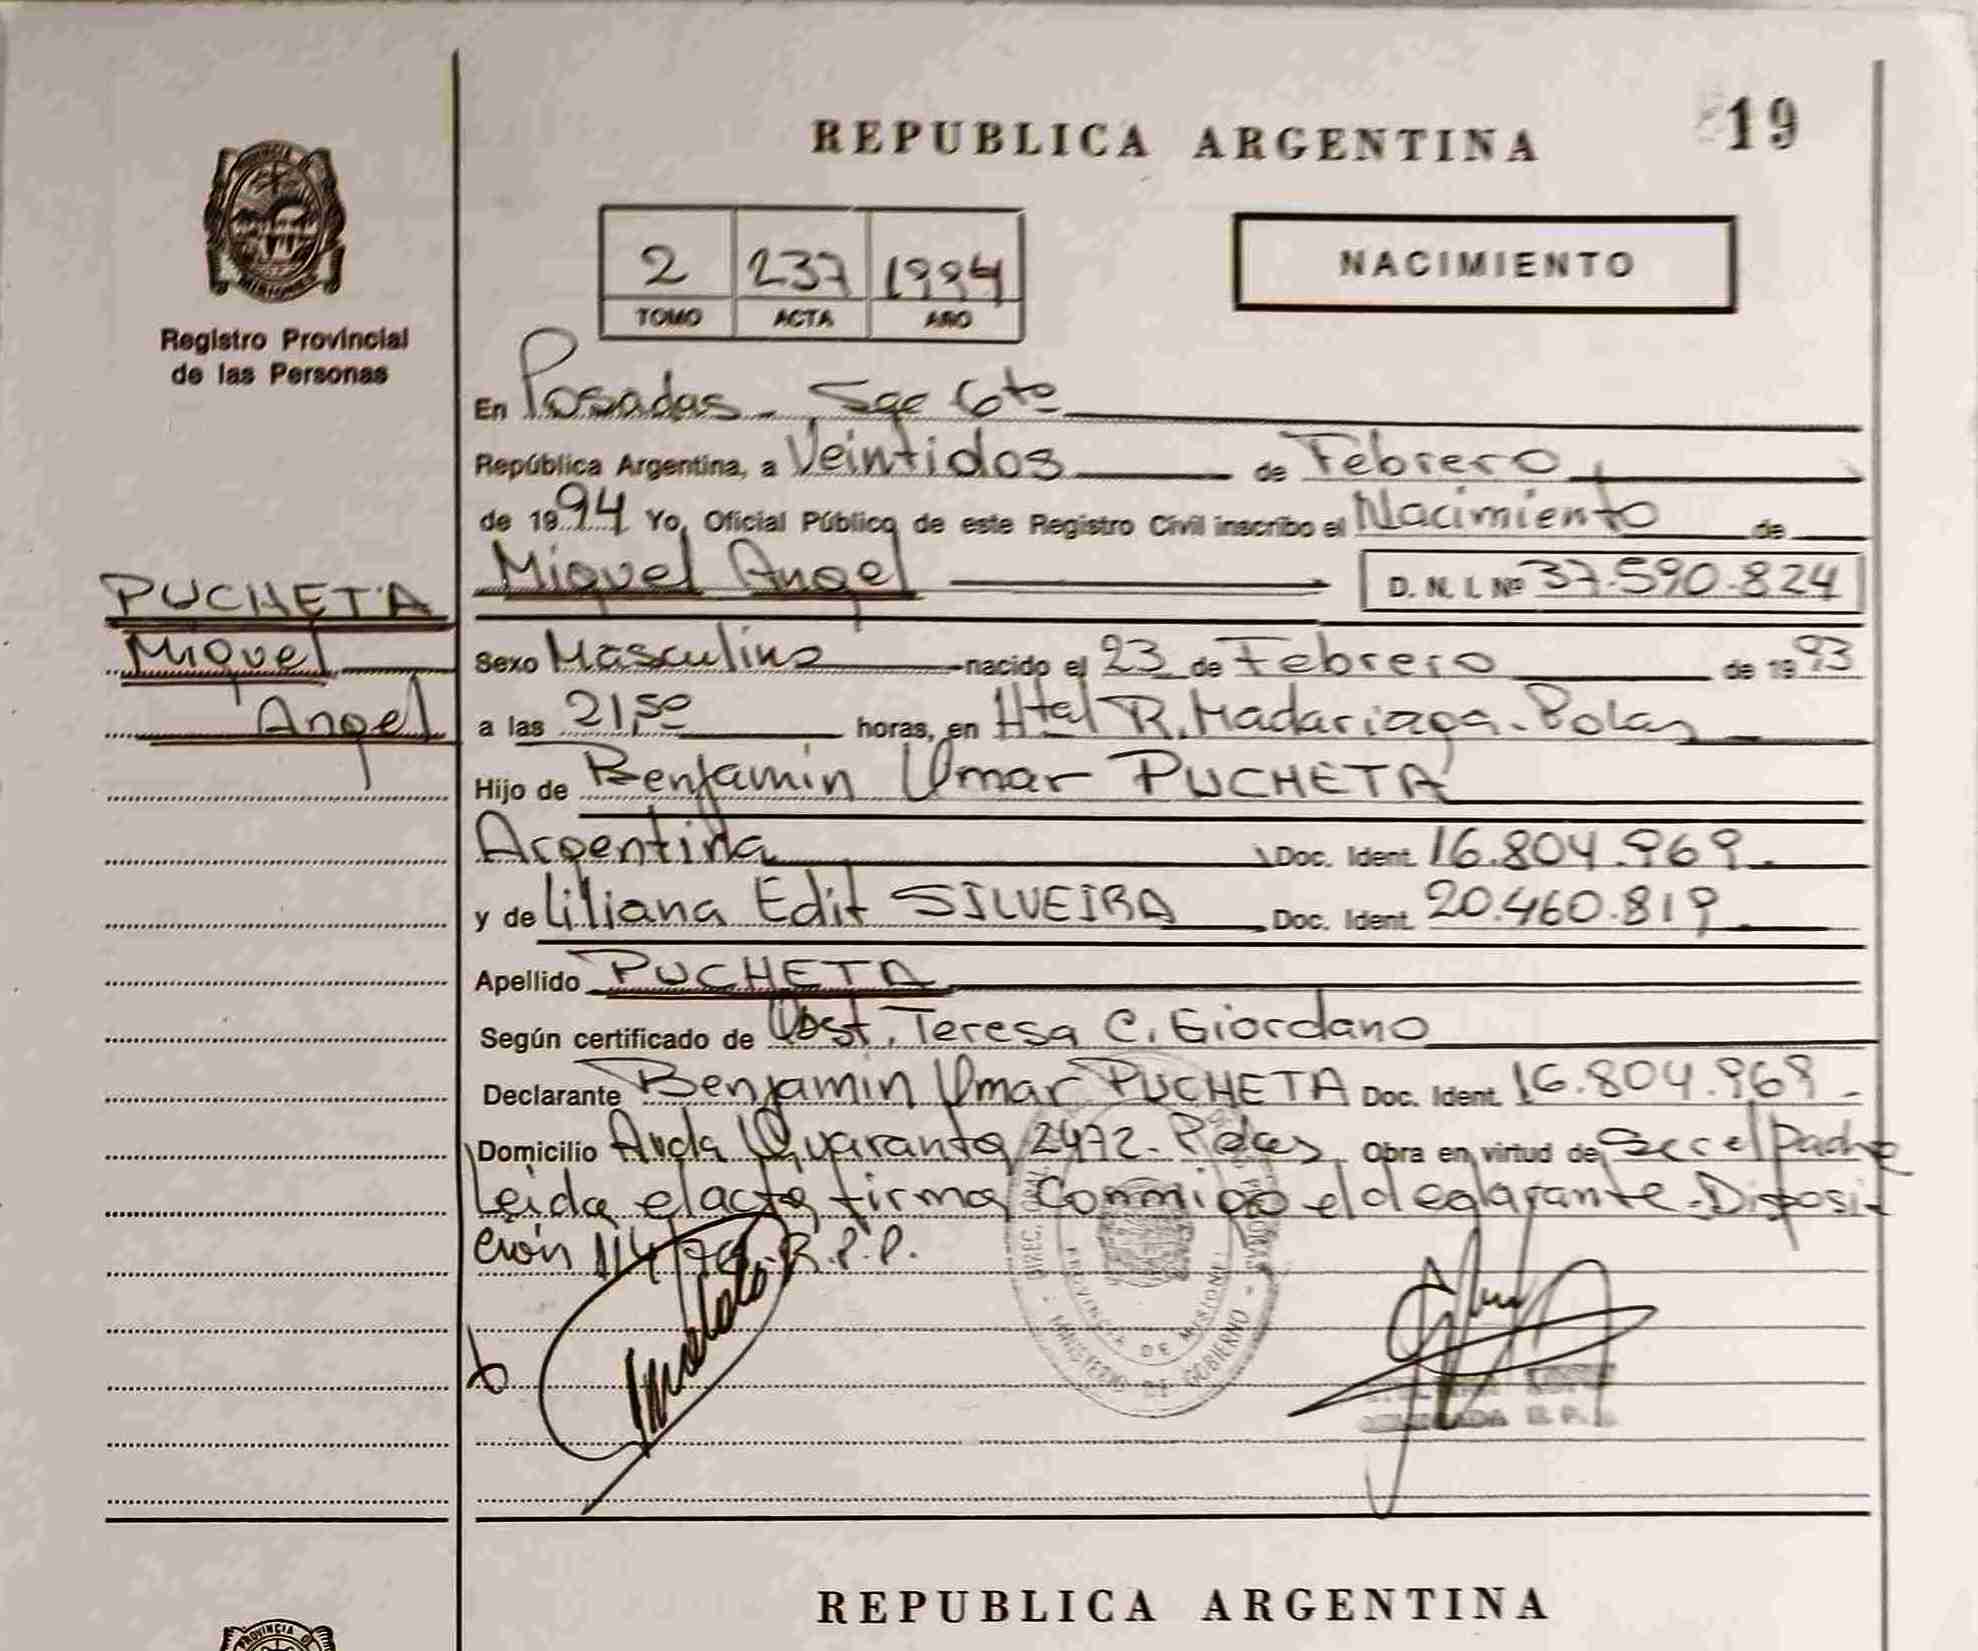 REPUBLICA ARGENTINA
19
2 237 1994
TOMO ACTA AÑO
NACIMIENTO
Registro Provincial
de las Personas
En Posadas - Sge 6to
República Argentina, a Veintidos de Febrero
de 1994 Yo, Oficial Público de este Registro Civil inscribo el Nacimiento de
Miguel Angel D. N. I. Nº 37.590.824
PUCHETA
Miguel
Angel
Sexo Masculino nacido el 23 de Febrero de 1993
a las 21,50 horas, en Htal R. Madariaga - Pdas
Hijo de Benjamin Omar PUCHETA
Argentina Doc. Ident. 16.804.969
y de Liliana Edit SILVEIRA Doc. Ident. 20.460.819
Apellido PUCHETA
Según certificado de Obst. Teresa C. Giordano
Declarante Benjamin Omar PUCHETA Doc. Ident. 16.804.969
Domicilio Avda Quaranta 2472 - Pdas Obra en virtud de ser el padre
Leida el acta firma conmigo el declarante - Disposi
ción 114 R.P.P.
PROVINCIA DE MISIONES
MINISTERIO DE GOBIERNO
REPUBLICA ARGENTINA
PROVINCIA